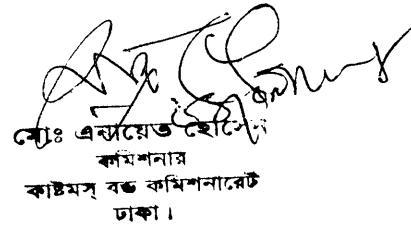 মোঃ এনায়েত হোসেন
কমিশনার
কাষ্টমস্ বন্ড কমিশনারেট
ঢাকা।